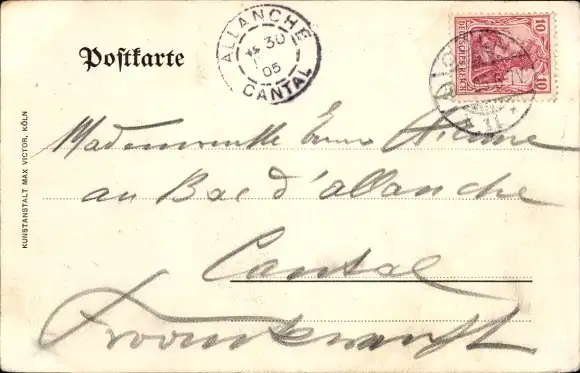 Postkarte
ALLANCHE
30
05
CANTAL
DEUTSCHES REICH
10
10
KUNSTANSTALT MAX VICTOR, KÖLN
Mademoiselle
au Bac d'allanche
Cantal